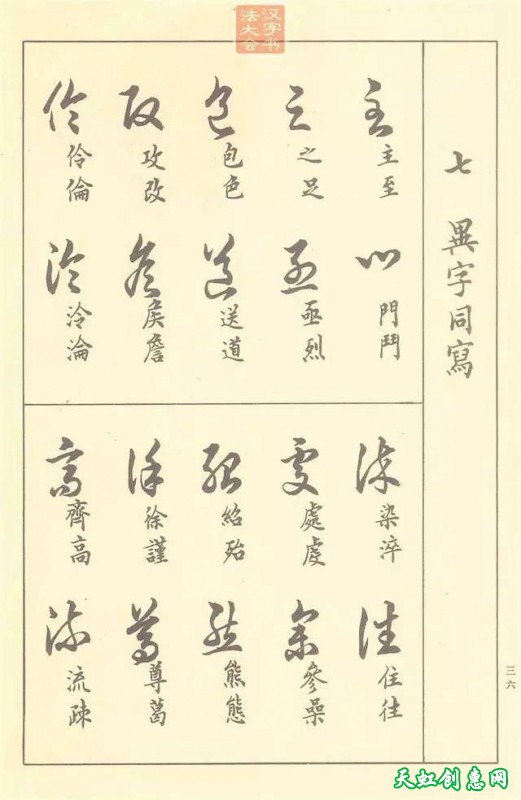 汉字书
法大会
七 異字同寫
主至
門鬥
之足
亟烈
包色
送道
攻改
侯詹
伶倫
泠淪
染淬
住往
處虔
參喿
紹殆
熊態
徐謹
尊葛
齊高
流疎
三六
天虹创惠网